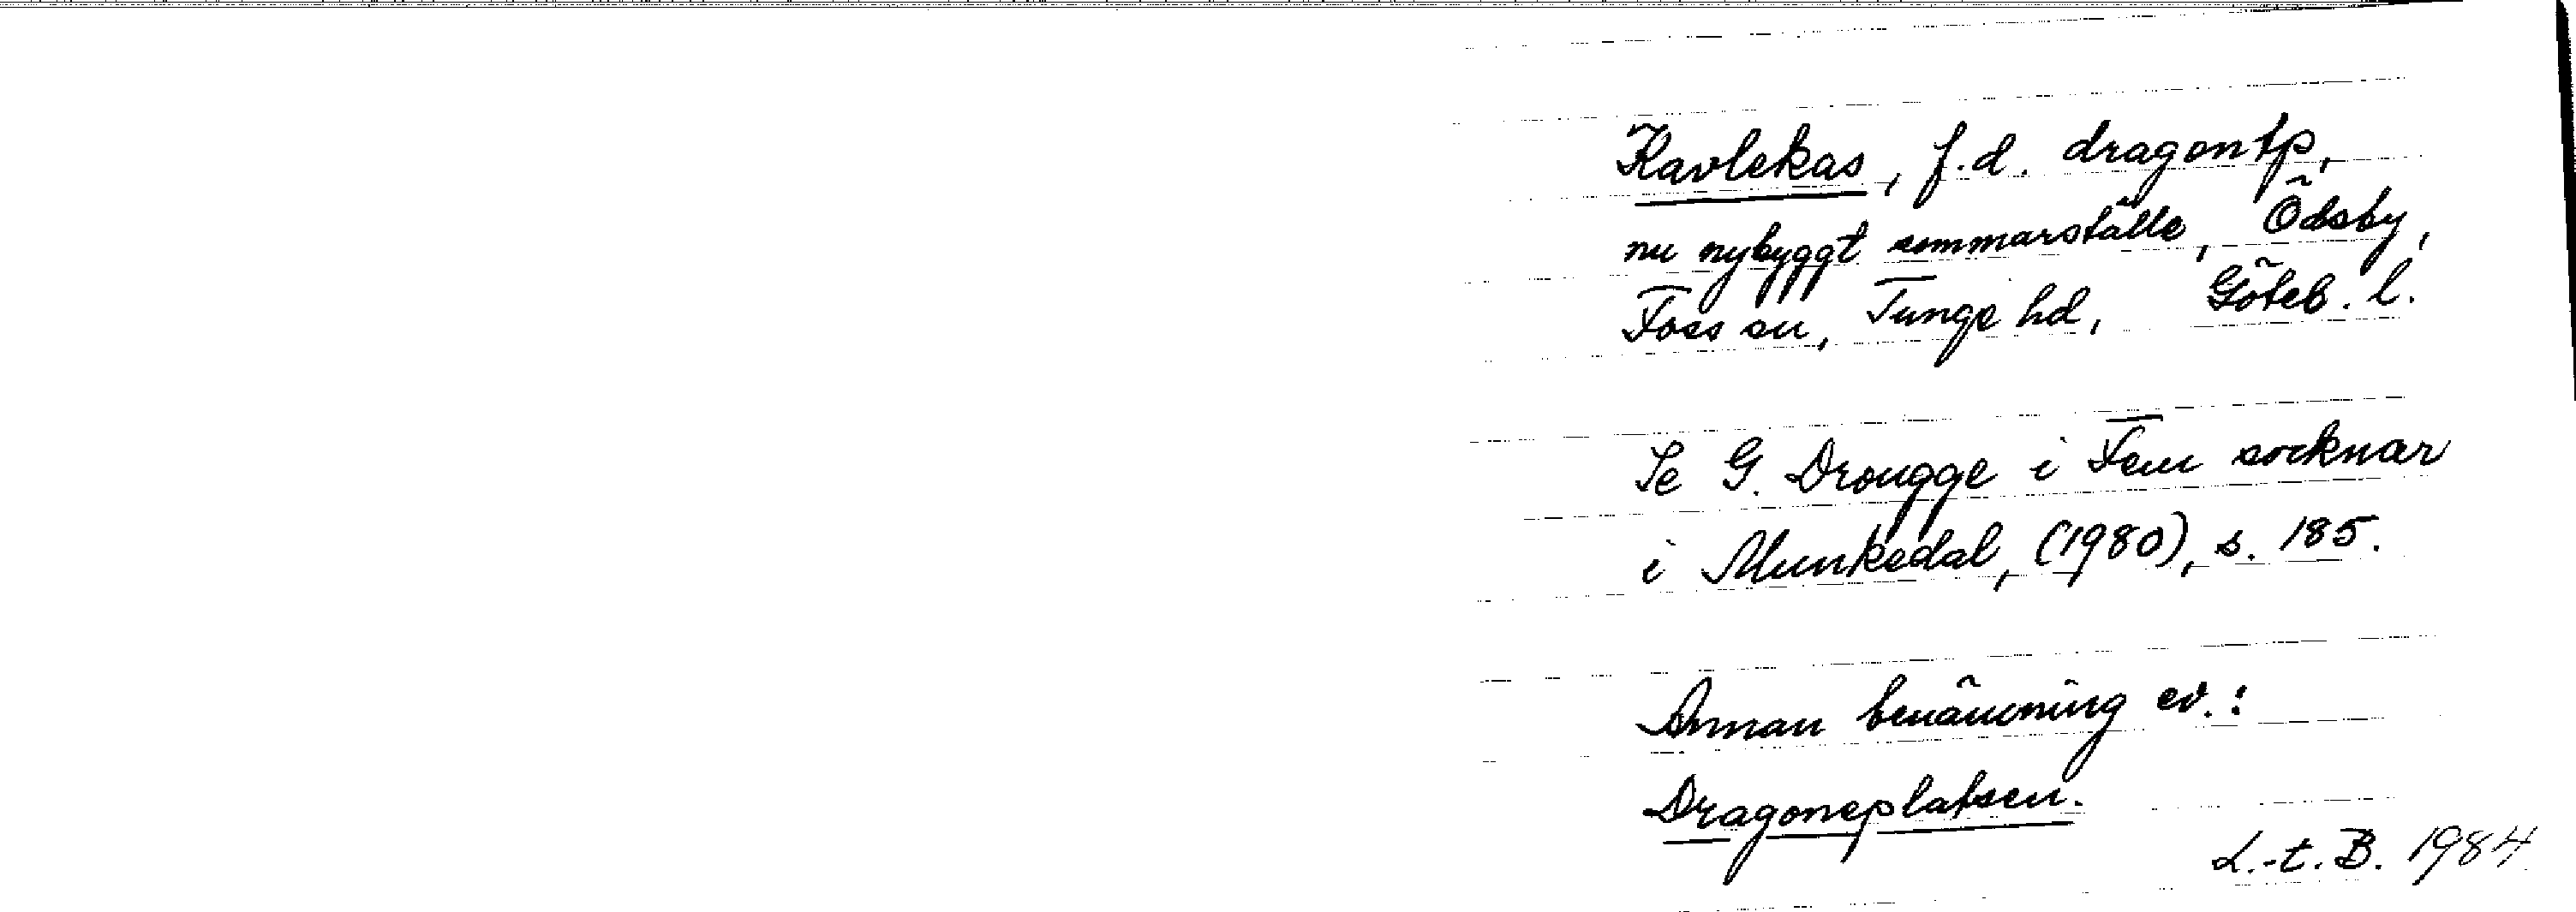 Kavlekas, f.d. dragontp,
nu nybyggt sommarställe, Ödsby,
Foss sn, Tunge hd, Göteb. l.
Se G. Drougge i Fem socknar
i Munkedal, (1980), s. 185.
Annan benämning ev.:
Dragoneplatsen.
L.-t. B. 1984